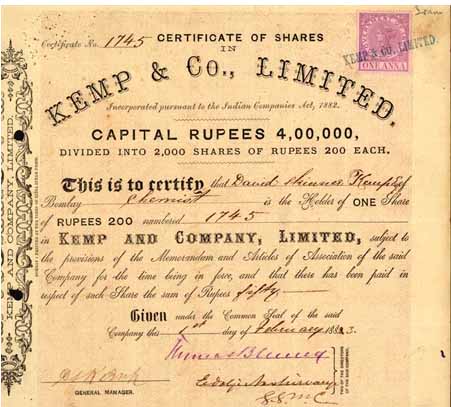 Certificate No. 1745 CERTIFICATE OF SHARES
IN
KEMP & CO., LIMITED.
KEMP & CO. LIMITED.
ONE ANNA
Incorporated pursuant to the Indian Companies Act, 1882.
CAPITAL RUPEES 4,00,000,
DIVIDED INTO 2,000 SHARES OF RUPEES 200 EACH.
This is to certify that David Skinner Kemp Esq
Bombay Chemist is the Holder of ONE Share
of RUPEES 200 numbered 1745
in KEMP AND COMPANY, LIMITED, subject to
the provisions of the Memorandum and Articles of Association of the said
Company for the time being in force, and that there has been paid in
respect of such Share the sum of Rupees fifty
Given under the Common Seal of the said
Company this day of February 1883.
GENERAL MANAGER.
TWO OF THE DIRECTORS
OF THE SAID COMPANY.
KEMP AND COMPANY, LIMITED.